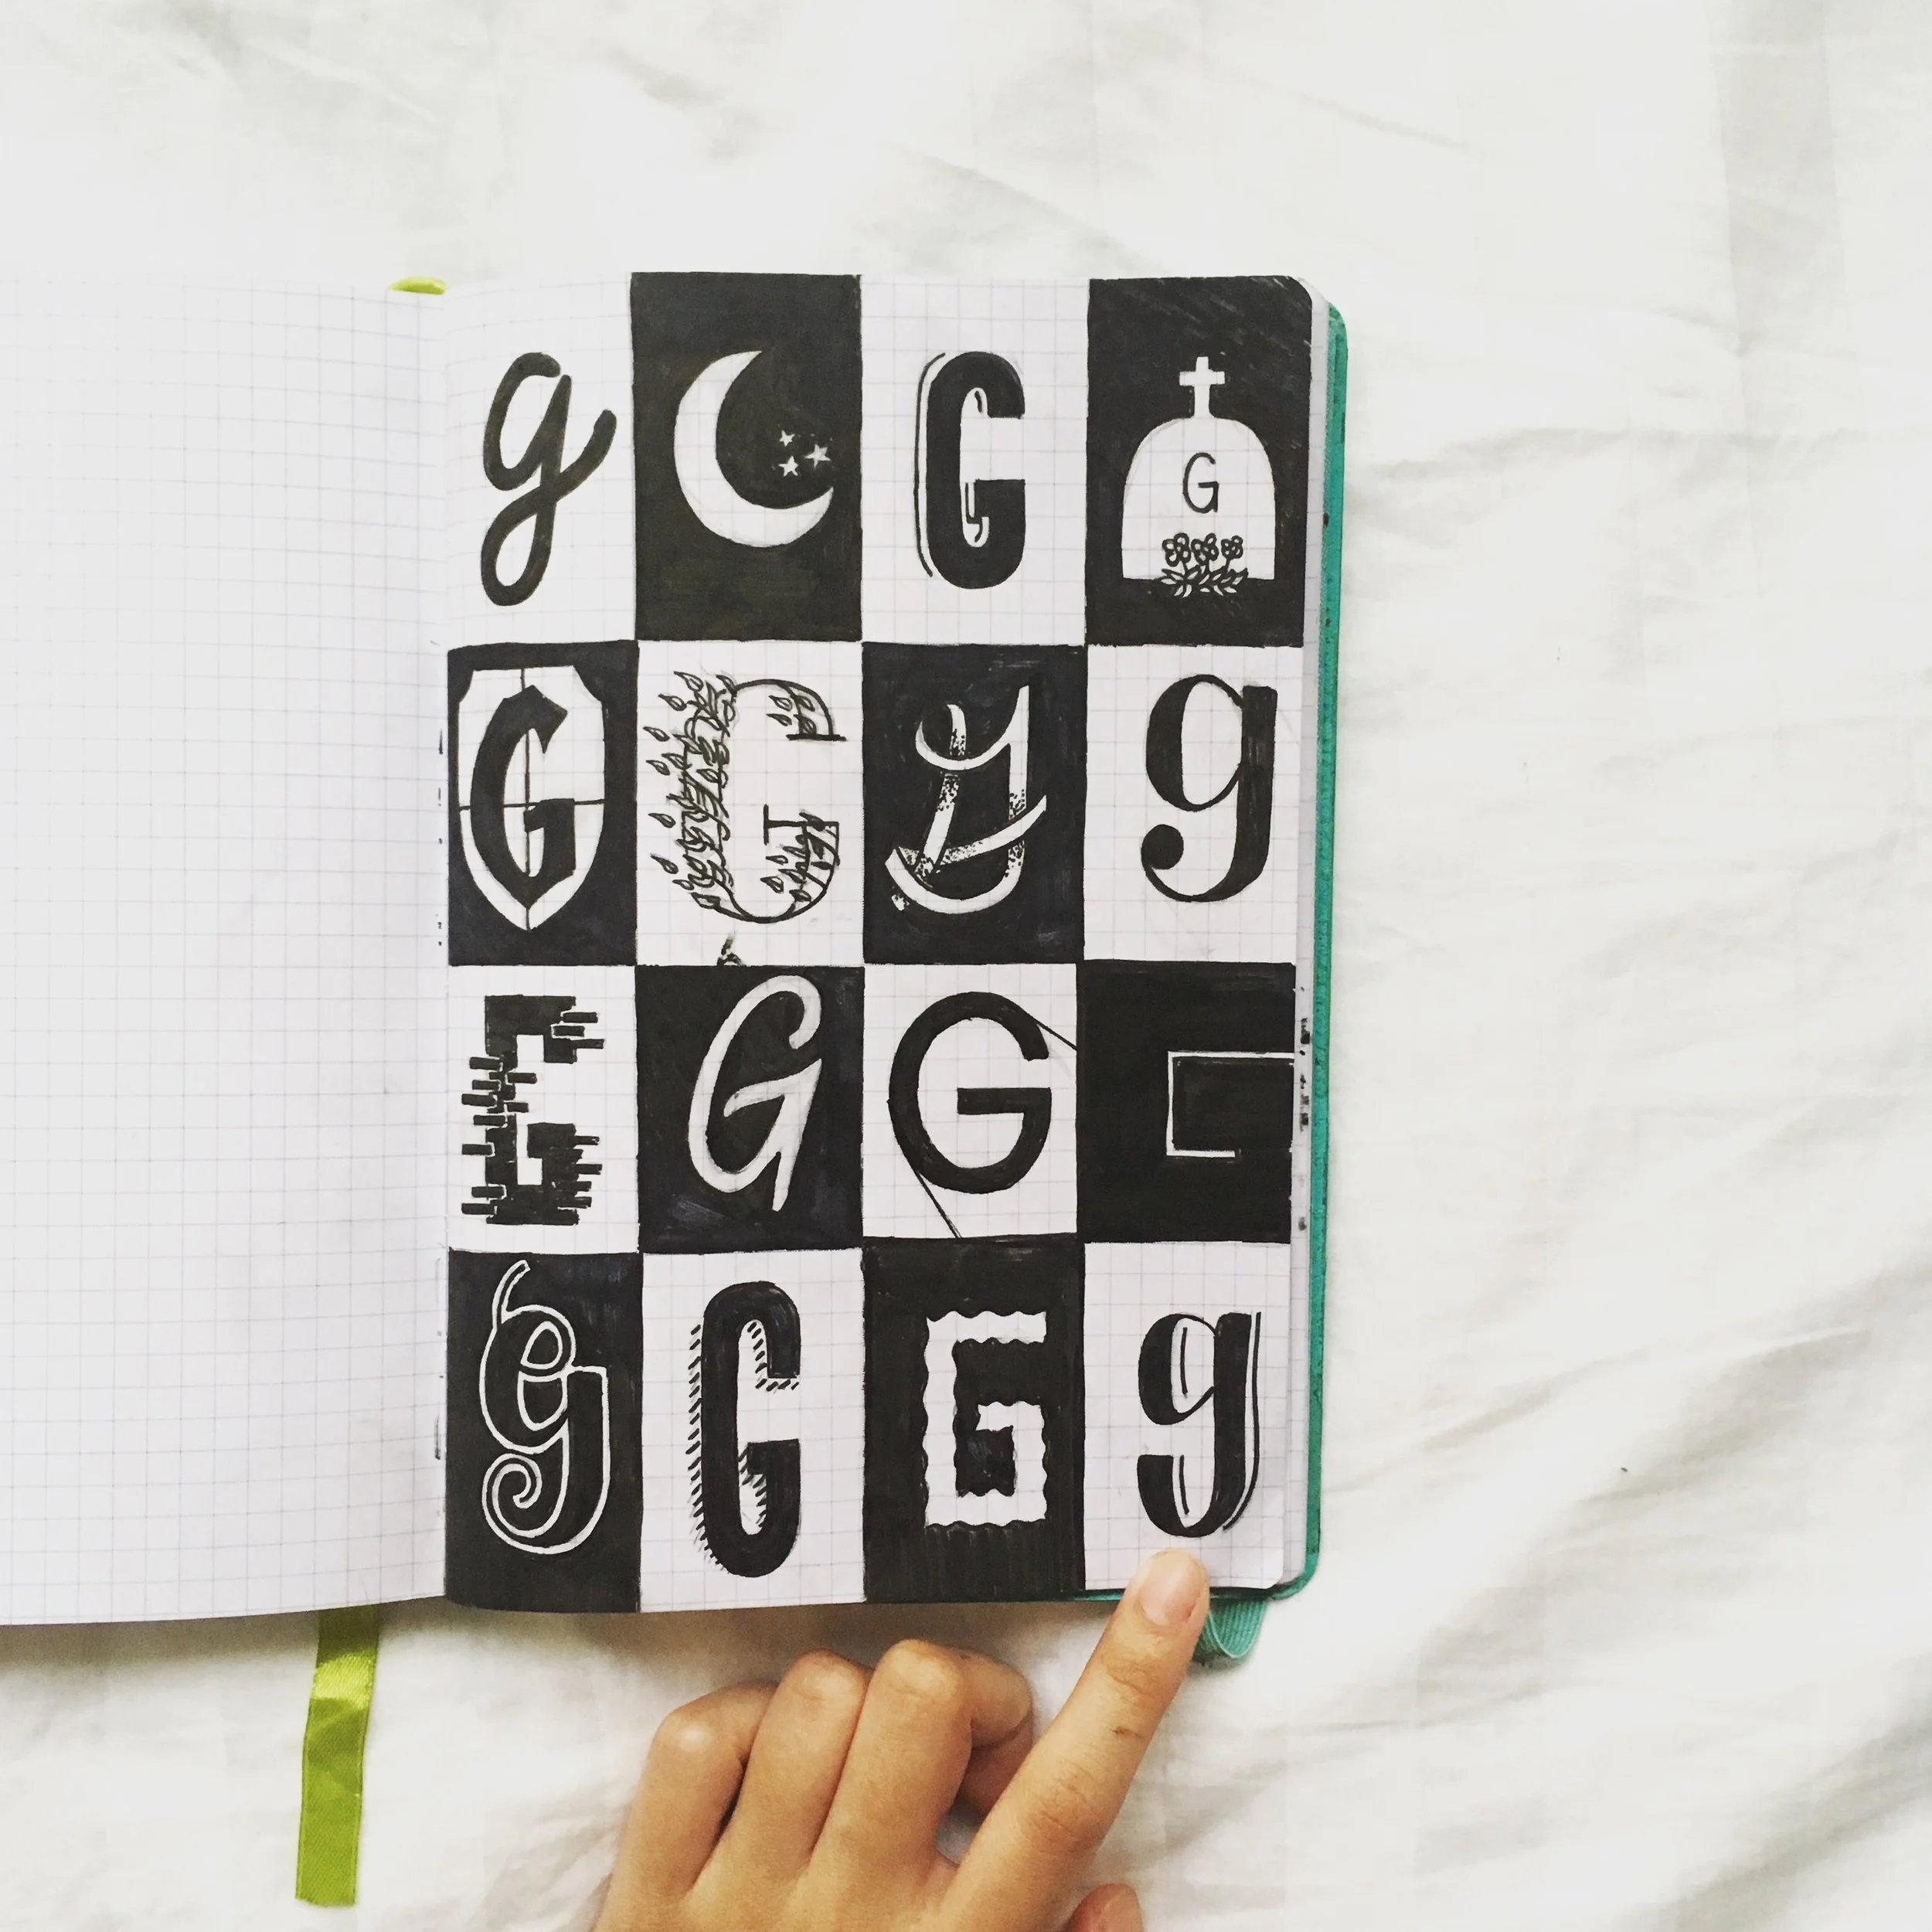 g G G G
G G g g
G G G G
g G G g